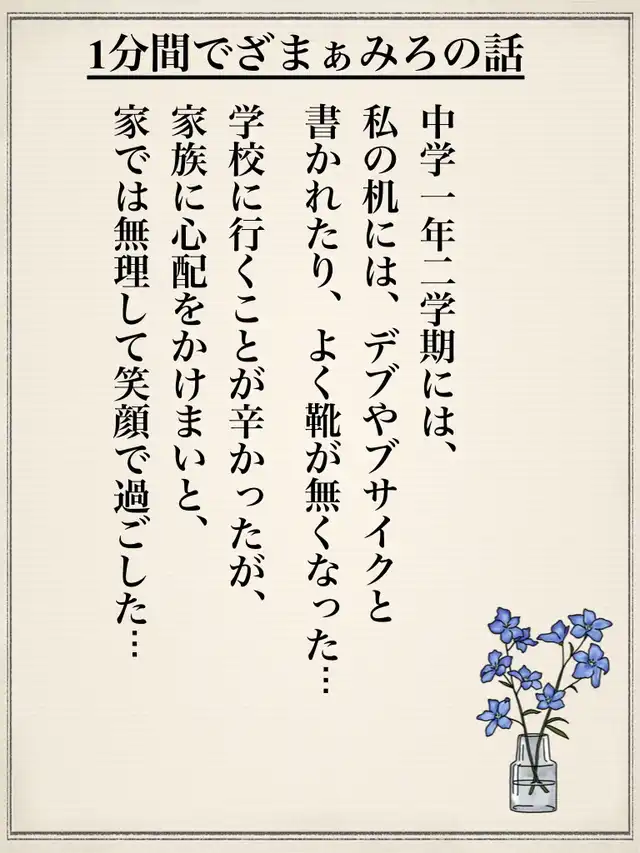 1分間でざまぁみろの話
中学一年二学期には、
私の机には、デブやブサイクと
書かれたり、よく靴が無くなった…
学校に行くことが辛かったが、
家族に心配をかけまいと、
家では無理して笑顔で過ごした…